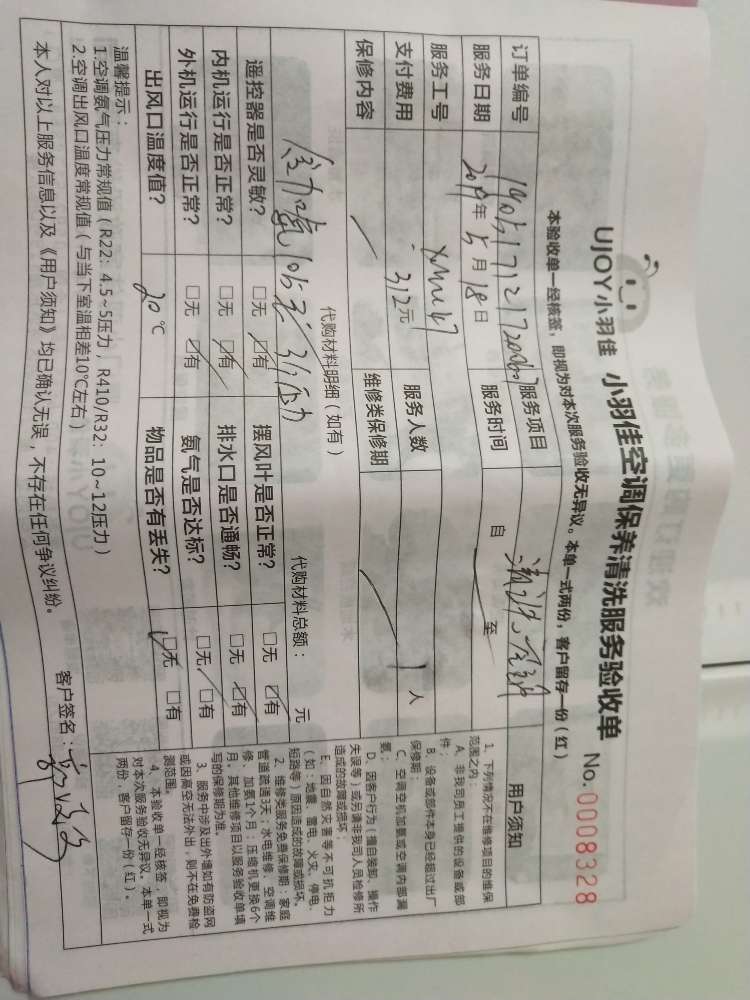 UJOY小羽佳 小羽佳空调保养清洗服务验收单 No.0008328
本验收单一经核签，即视为对本次服务验收无异议。本单一式两份，客户留存一份（红）
订单编号 服务项目
服务日期 2019年5月18日 服务时间 自 至
服务工号
支付费用 312元 服务人数 1人
保修内容 维修类保修期
代购材料明细（如有） 代购材料总额： 元
遥控器是否灵敏？ □无 ☑有 摆风叶是否正常？ □无 ☑有
内机运行是否正常？ □无 ☑有 排水口是否通畅？ □无 ☑有
外机运行是否正常？ □无 ☑有 氨气是否达标？ □无 ☑有
出风口温度值？ 20℃ 物品是否有丢失？ ☑无 □有
温馨提示：
1.空调氨气压力常规值（R22：4.5~5压力，R410/R32：10~12压力）
2.空调出风口温度常规值（与当下室温相差10℃左右）
本人对以上服务信息以及《用户须知》均已确认无误，不存在任何争议纠纷。
客户签名：
用户须知
1、下列情况不在维修项目的维保
范围之内：
A、非我司员工提供的设备或部
件；
B、设备或部件本身已经超过出厂
保修期；
C、空调空机加氨或空调内部漏
氨；
D、因客户行为（擅自装卸、操作
失误等）或另请非我司人员检修所
造成的故障或损坏；
E、因自然灾害等不可抗拒力
（如：地震、雷电、火灾、停电、
短路等）原因造成的故障或损坏。
2、维修类服务免费保修期：家庭
管道疏通3天；水电维修、空调维
修、加氨1个月；压缩机更换6个
月。其他维修项目以服务验收单填
写的保修期为准。
3、服务中涉及出外墙如有防盗网
或因高空无法外出，则不在免费检
测范围。
4、本验收单一经核签，即视为
对本次服务验收无异议。本单一式
两份，客户留存一份（红）。